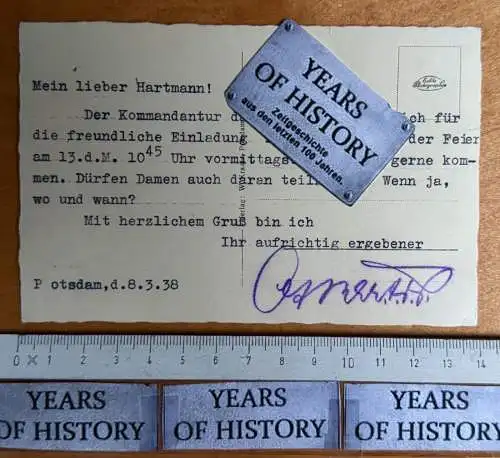 Mein lieber Hartmann!
Der Kommandantur d ich für
die freundliche Einladung der Feier
am 13.d.M. 10⁴⁵ Uhr vormittags gerne kom-
men. Dürfen Damen auch daran teil Wenn ja,
wo und wann?
Mit herzlichem Gruß bin ich
Ihr aufrichtig ergebener
Potsdam,d.8.3.38
YEARS
OF HISTORY
Zeitgeschichte
aus den letzten 100 Jahren.
0 1 2 3 4 5 6 7 8 9 10 11 12 13 14
YEARS
OF HISTORY
YEARS
OF HISTORY
YEARS
OF HISTORY